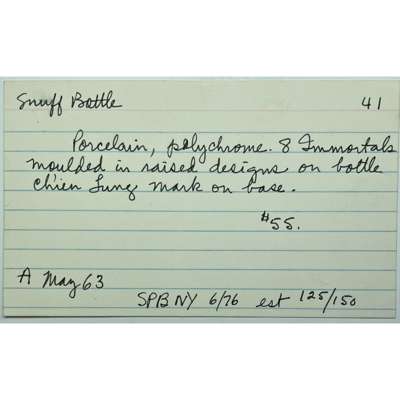 Snuff Bottle 41
Porcelain, polychrome. 8 Immortals
moulded in raised designs on bottle
ch'ien Lung mark on base.
$55.
A May 63
SPB NY 6/76 est 125/150